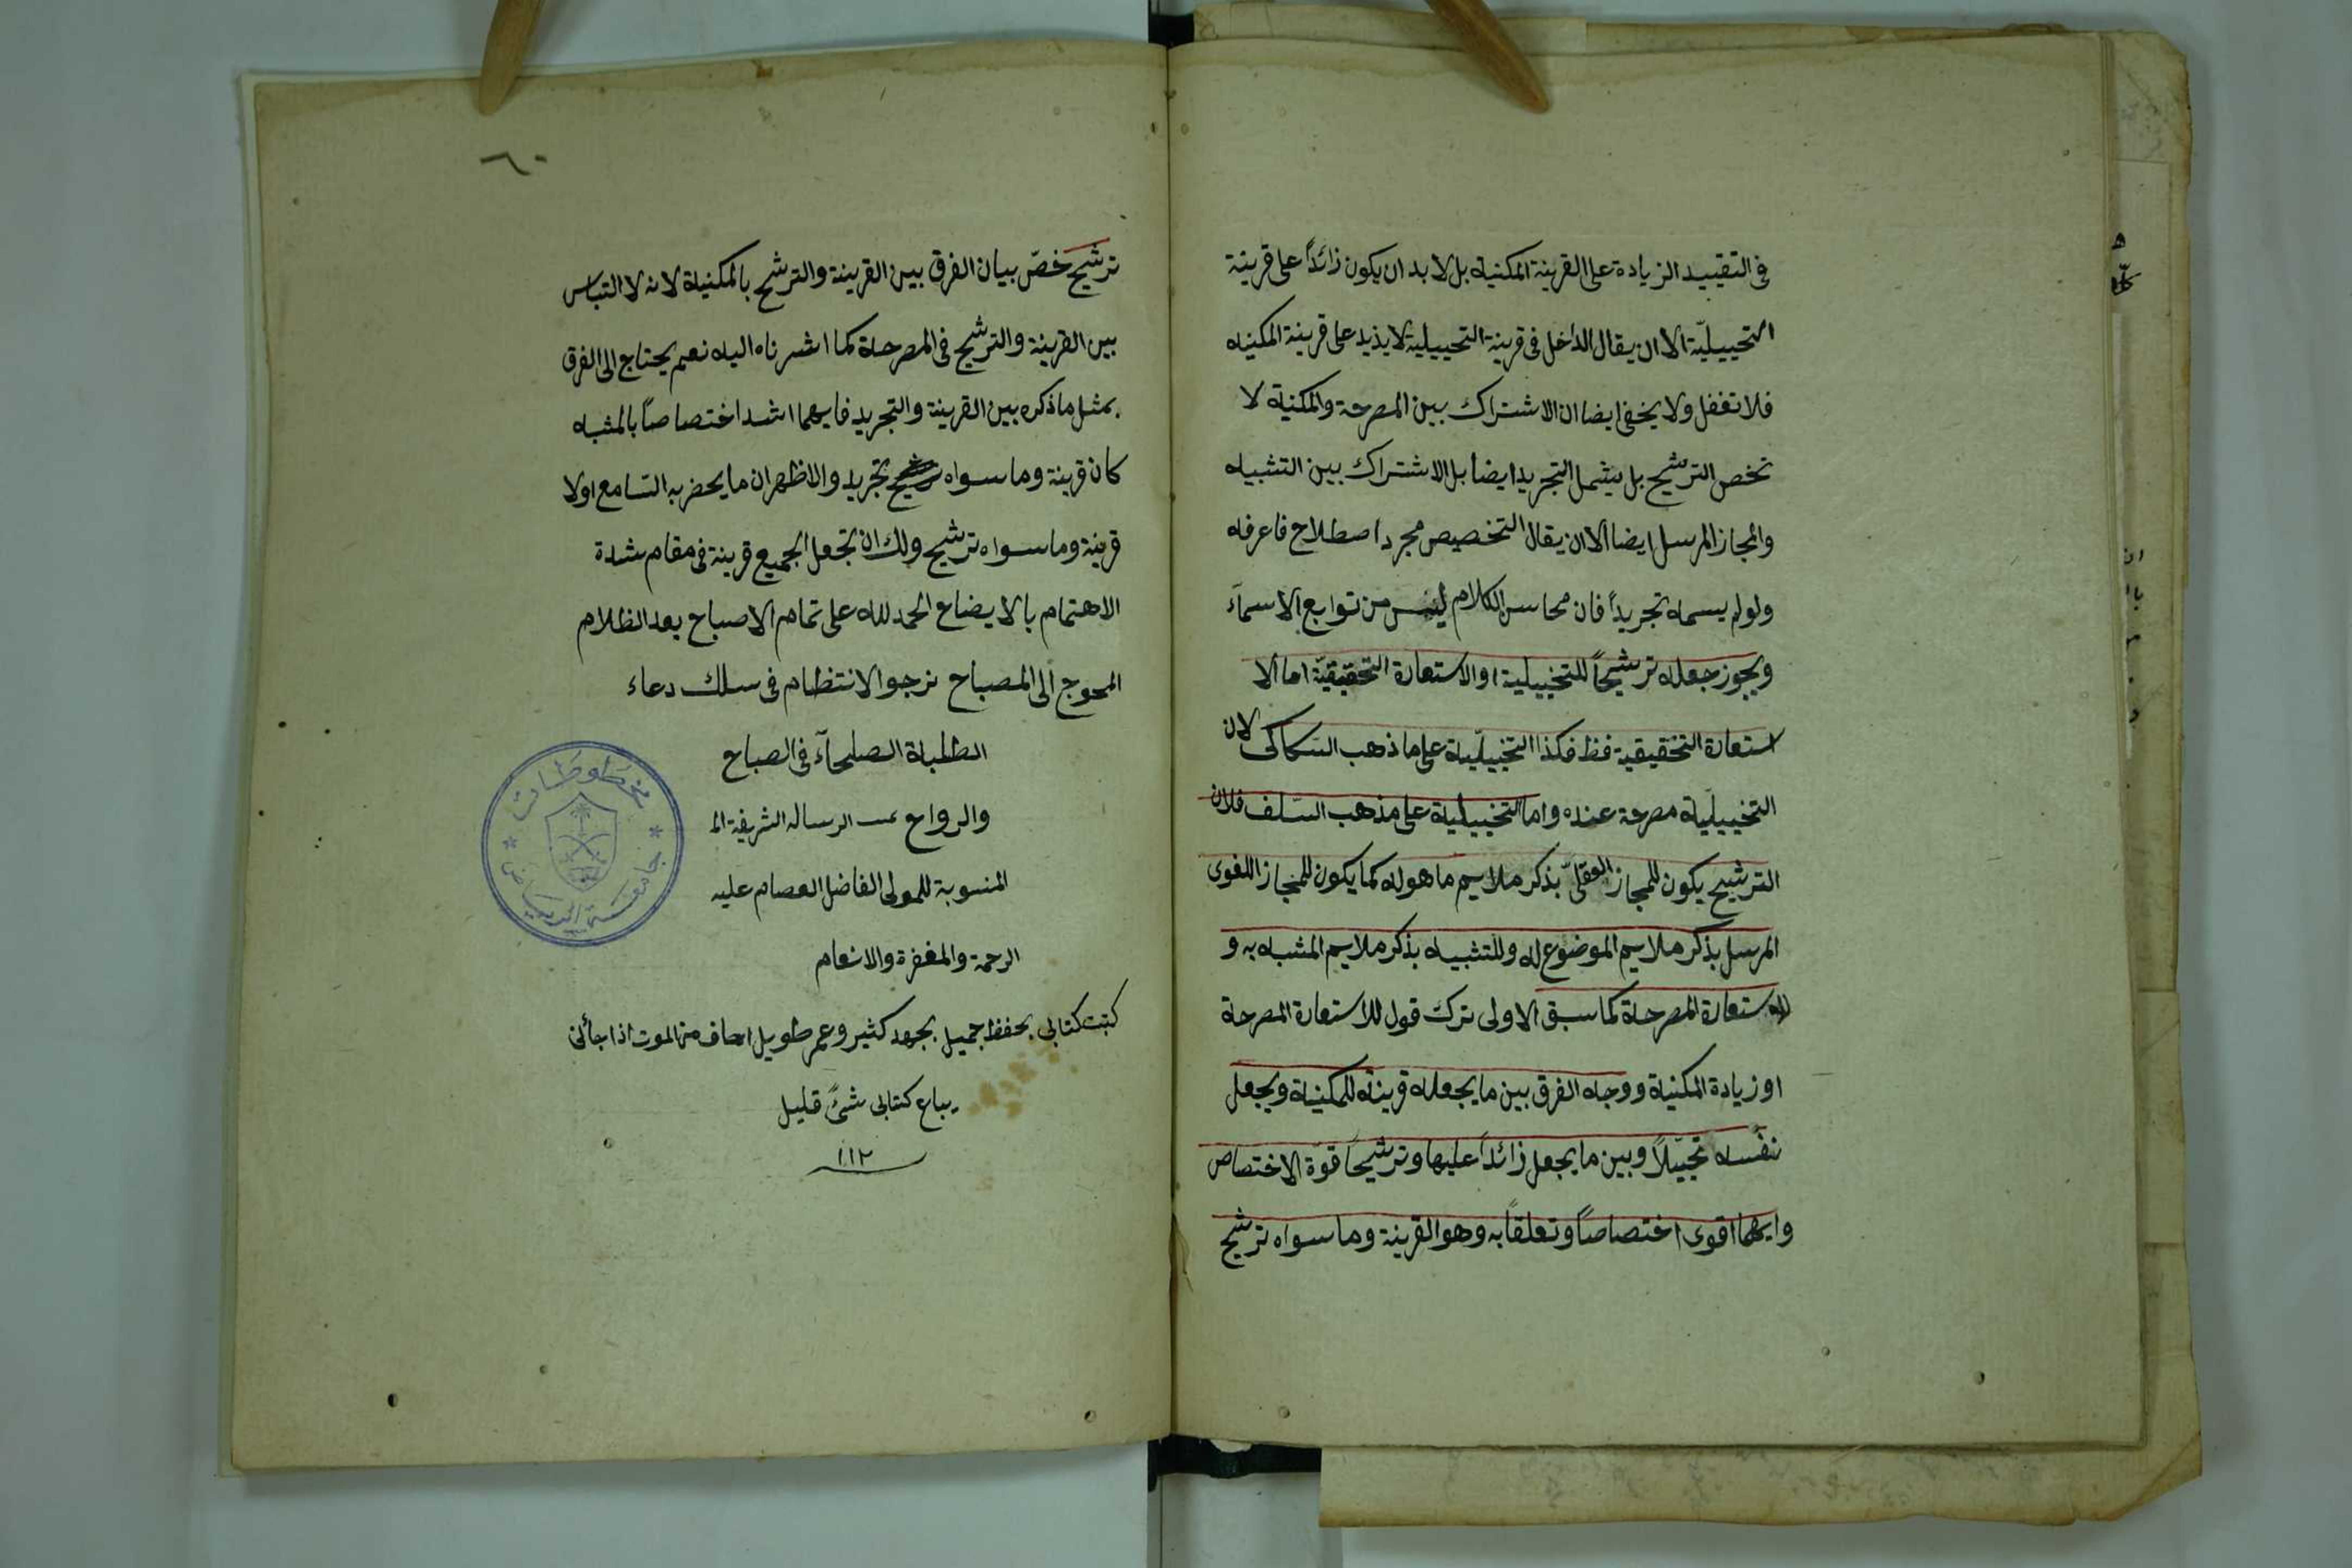 في التقييد الزيادة على القرينة المكنية بل لا بد ان يكون زائداً على قرينة
التخييليّة الا ان يقال الداخل في قرينة التخييلية لا يذيد على قرينة المكنيه
فلا تغفل ولا يخفى ايضا ان الاشتراك بين المصرحة والمكنية لا
تخص الترشيح بل يشمل التجريد ايضا بل الاشتراك بين التشبيه
والمجاز المرسل ايضا الا ان يقال التخصيص مجرد اصطلاح فاعرفه
ولو لم يسمه تجريداً فان محاسن الكلام ليس من توابع الاسمآء
ويجوز جعله ترشيحاً للتخييلية او الاستعارة التحقيقيّة اما الا
ستعارة التحقيقية فظ فكذا التخييليّة على ما ذهب السكاكى لان
التخييليّة مصرحة عنده واما التخييليّة على مذهب السّلف فلان
الترشيح يكون للمجاز العقلىّ بذكر ملايم ما هو له كما يكون للمجاز اللغوى
المرسل بذكر ملايم الموضوع له وللتشبيه بذكر ملايم المشبه به و
للاستعارة المصرحة كما سبق الاولى ترك قول للاستعارة المصرحة
او زيادة المكنية ووجه الفرق بين ما يجعله قرينة للمكنية ويجعل
نفسه تخييلاً وبين ما يجعل زائداً عليها وترشيحاً قوّة الاختصاص
وايهما اقوى اختصاصاً وتعلقاً به وهو القرينة وما سواه ترشيح
٦٠
ترشيح خصّ بيان الفرق بين القرينة والترشيح بالمكنية لانه لا التباس
بين القرينة والترشيح فى المصرحة كما اشرناه اليه نعم يحتاج الى الفرق
بمثل ما ذكره بين القرينة والتجريد فايهما اشد اختصاصاً بالمشبه
كان قرينة وما سواه تجريد والاظهر ان ما يحضر به السّامع اولا
قرينة وما سواه ترشيح ولك ان تجعل الجميع قرينة فى مقام شدة
الاهتمام بالايضاح الحمد لله على تمام الاصباح بعد الظلام
المحوج الى المصباح نرجو الانتظام فى سلك دعاء
الطلبة الصلحآء فى الصباح
والرواح تمت الرساله الشريفة الم
المنسوبة للمولى الفاضل العصام عليه
الرحمة والمغفرة والانعام
كتبت كتابى بحفظ جميل بجهد كثير وعمر طويل اخاف من الموت اذا جأنى
يباع كتابى شئ قليل
١١٢
مخطوطات
جامعة الرياض